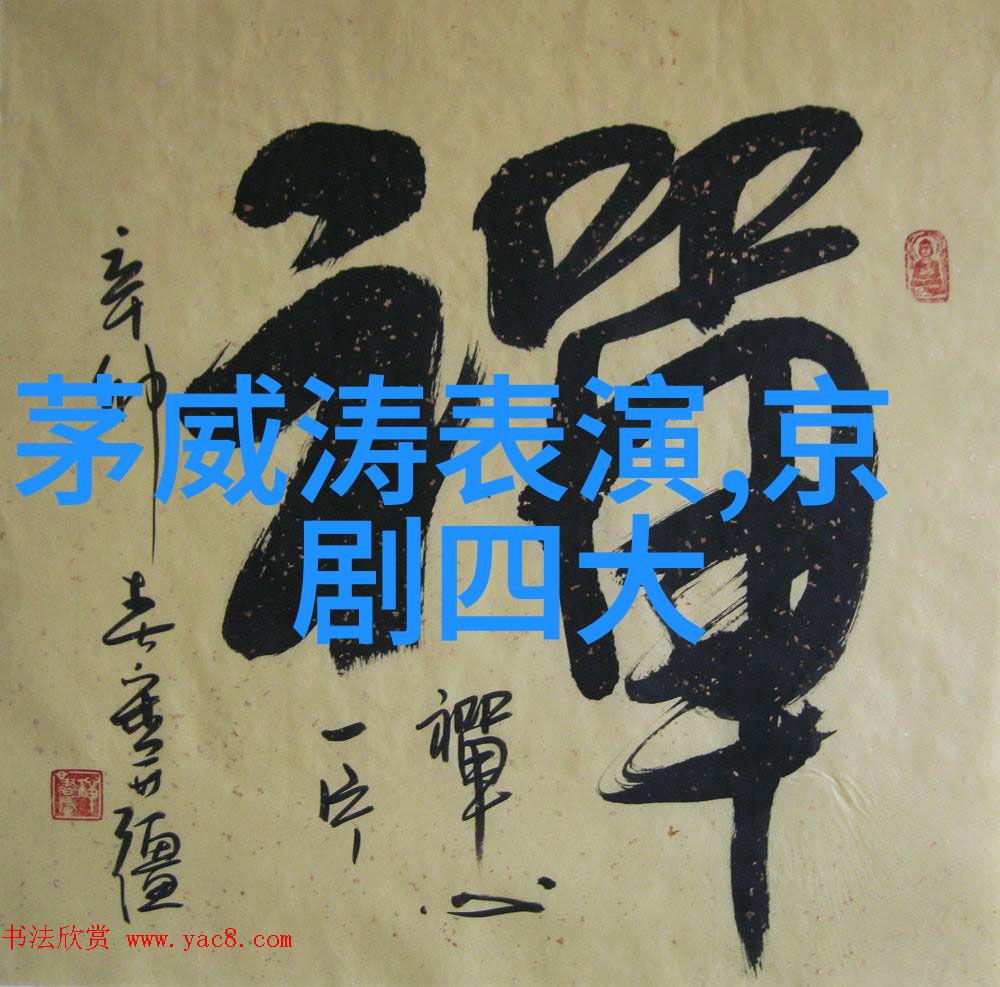 禪
禪心
一片
辛 春
茅威涛表演,京
剧四大
书法欣赏 www.yac8.com